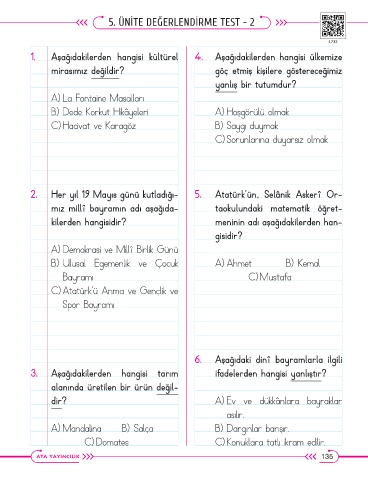 5. ÜNİTE DEĞERLENDİRME TEST - 2
1. Aşağıdakilerden hangisi kültürel
mirasımız değildir?
A) La Fontaine Masalları
B) Dede Korkut Hikâyeleri
C) Hacivat ve Karagöz
2. Her yıl 19 Mayıs günü kutladığı-
mız millî bayramın adı aşağıda-
kilerden hangisidir?
A) Demokrasi ve Millî Birlik Günü
B) Ulusal Egemenlik ve Çocuk
Bayramı
C) Atatürk'ü Anma ve Gençlik ve
Spor Bayramı
3. Aşağıdakilerden hangisi tarım
alanında üretilen bir ürün değil-
dir?
A) Mandalina B) Salça
C) Domates
4. Aşağıdakilerden hangisi ülkemize
göç etmiş kişilere göstereceğimiz
yanlış bir tutumdur?
A) Hoşgörülü olmak
B) Saygı duymak
C) Sorunlarına duyarsız olmak
5. Atatürk'ün, Selânik Askerî Or-
taokulundaki matematik öğret-
meninin adı aşağıdakilerden han-
gisidir?
A) Ahmet B) Kemal
C) Mustafa
6. Aşağıdaki dinî bayramlarla ilgili
ifadelerden hangisi yanlıştır?
A) Ev ve dükkânlara bayraklar
asılır.
B) Dargınlar barışır.
C) Konuklara tatlı ikram edilir.
ATA YAYINCILIK
135